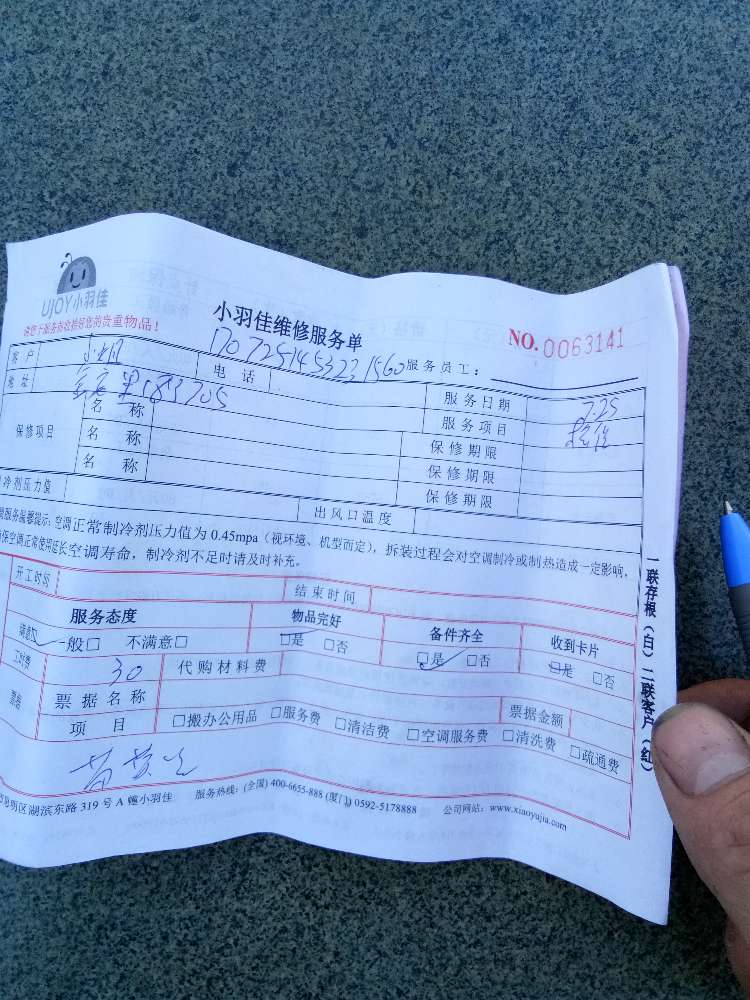 UJOY小羽佳
小羽佳维修服务单
NO.0063141
服务员工：
客户
电话
服务日期
7.25
地址
服务项目
保修项目
名称
保修期限
名称
保修期限
名称
保修期限
冷剂压力值
出风口温度
空调正常制冷剂压力值为 0.45mpa（视环境、机型而定），拆装过程会对空调制冷或制热造成一定影响，
保空调正常使用延长空调寿命，制冷剂不足时请及时补充。
开工时间
结束时间
服务态度
物品完好
备件齐全
收到卡片
满意 一般□ 不满意□
□是 □否
□是 □否
□是 □否
工时费
30
代购材料费
票据名称
票据金额
项目
□搬办公用品 □服务费 □清洁费 □空调服务费 □清洗费 □疏通费
明区湖滨东路 319 号 A 幢小羽佳 服务热线：(全国) 400-6655-888 (厦门) 0592-5178888 公司网站：www.xiaoyujia.com
一联存根（白）二联客户（红）